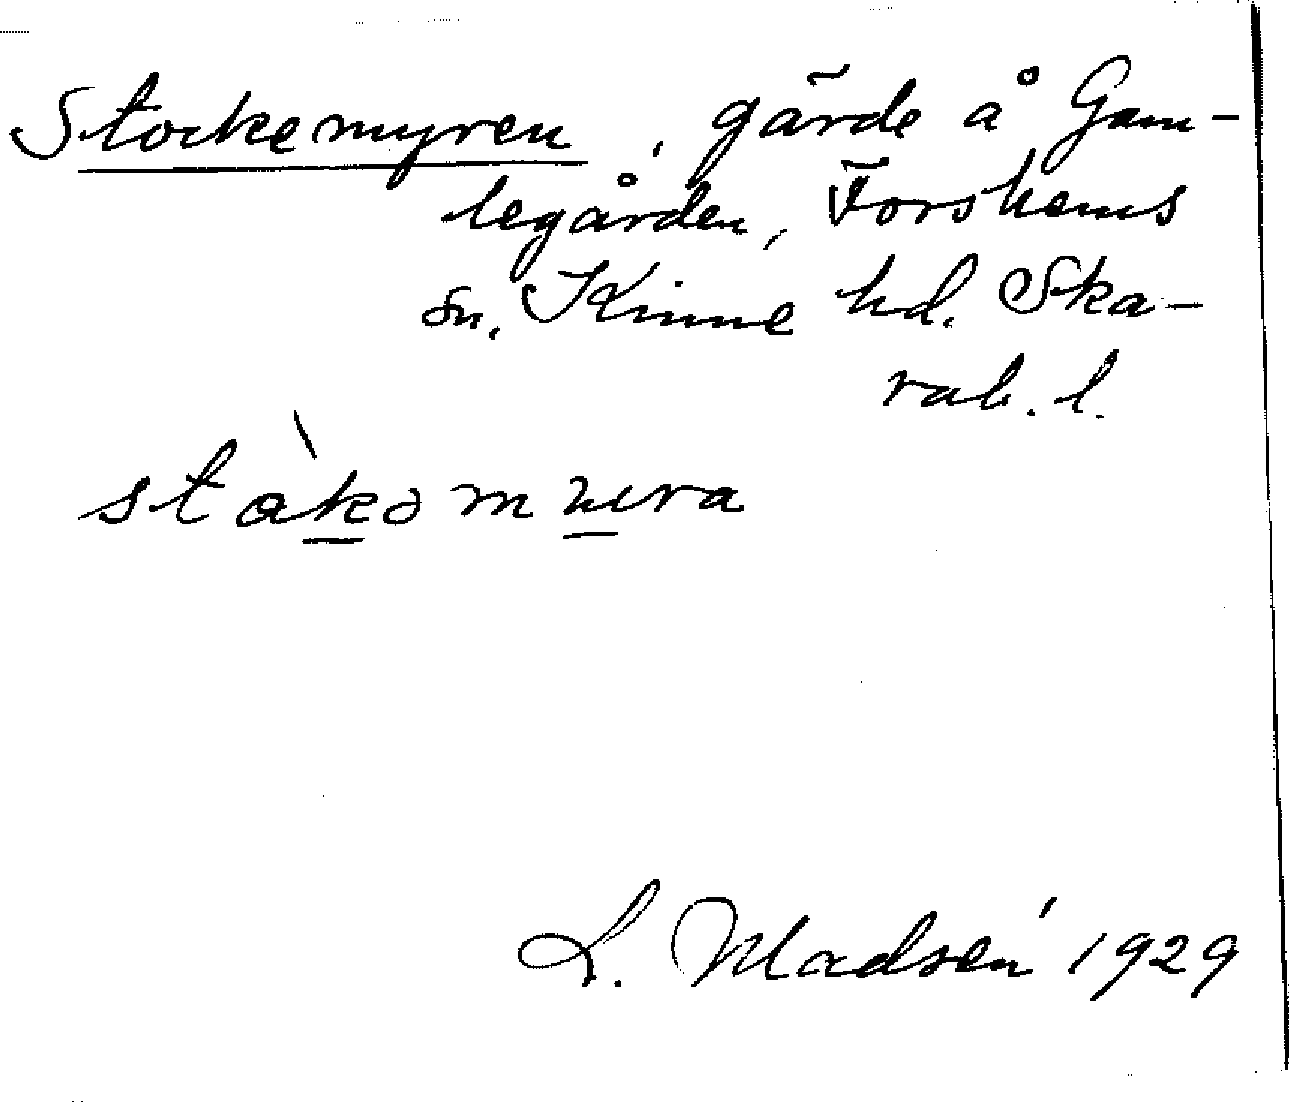 Stockemyren, gärde å Gam-
legården, Forshems
sn. Kinne hd. Ska-
rab. l.
L. Madsén 1929